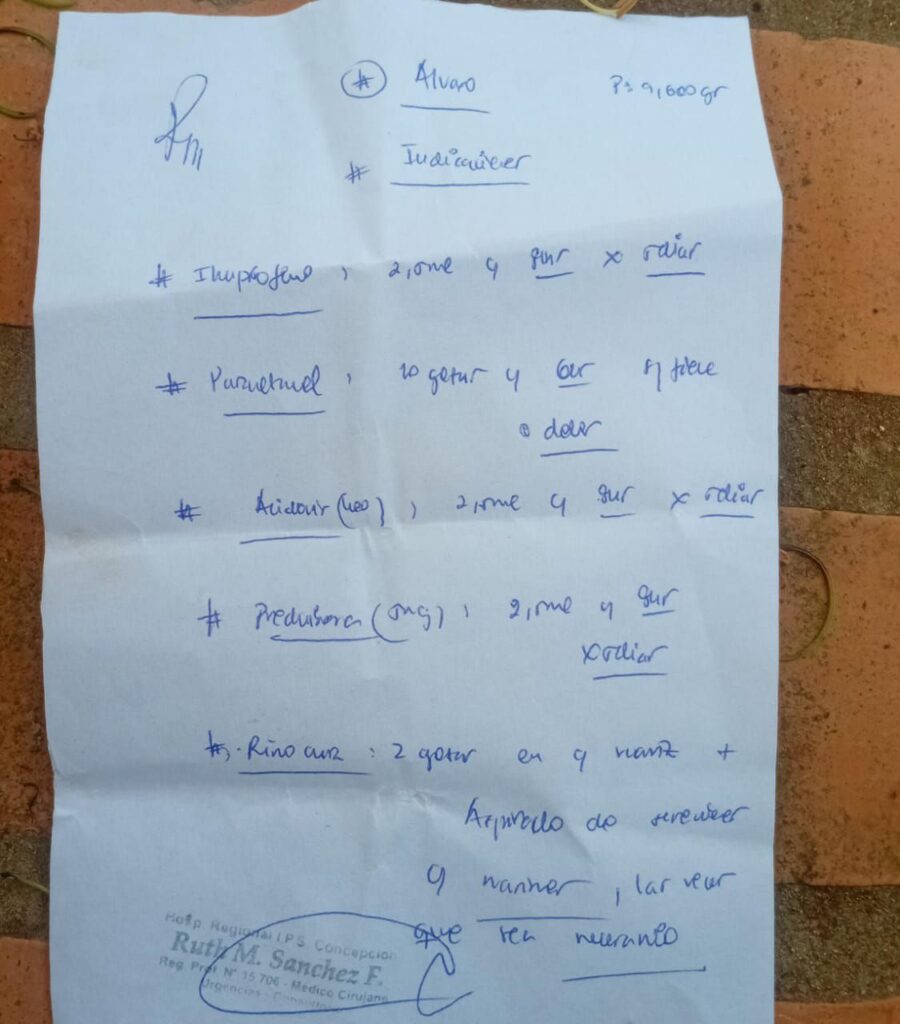 # Alvaro P: 9,600gr
# Indicaciones
# Ibuprofeno : 2,5ml c/ 8hr x 5dias
# Paracetamol : 10 gotas c/ 6hr si fiebre
o dolor
# (400) : 2,5ml c/ 8hr x 5dias
# Prednisona (5mg) : 2,5ml c/ 8hr
x 5dias
# Rino : 2 gotas en c/ nariz +
Aspirado de secreciones
c/ , las veces
que sea necesario
Hosp. Regional I.P.S. Concepcion
Ruth M. Sanchez F.
Reg. Prof. N° 15.706 - Medico Cirujano
Urgencias -